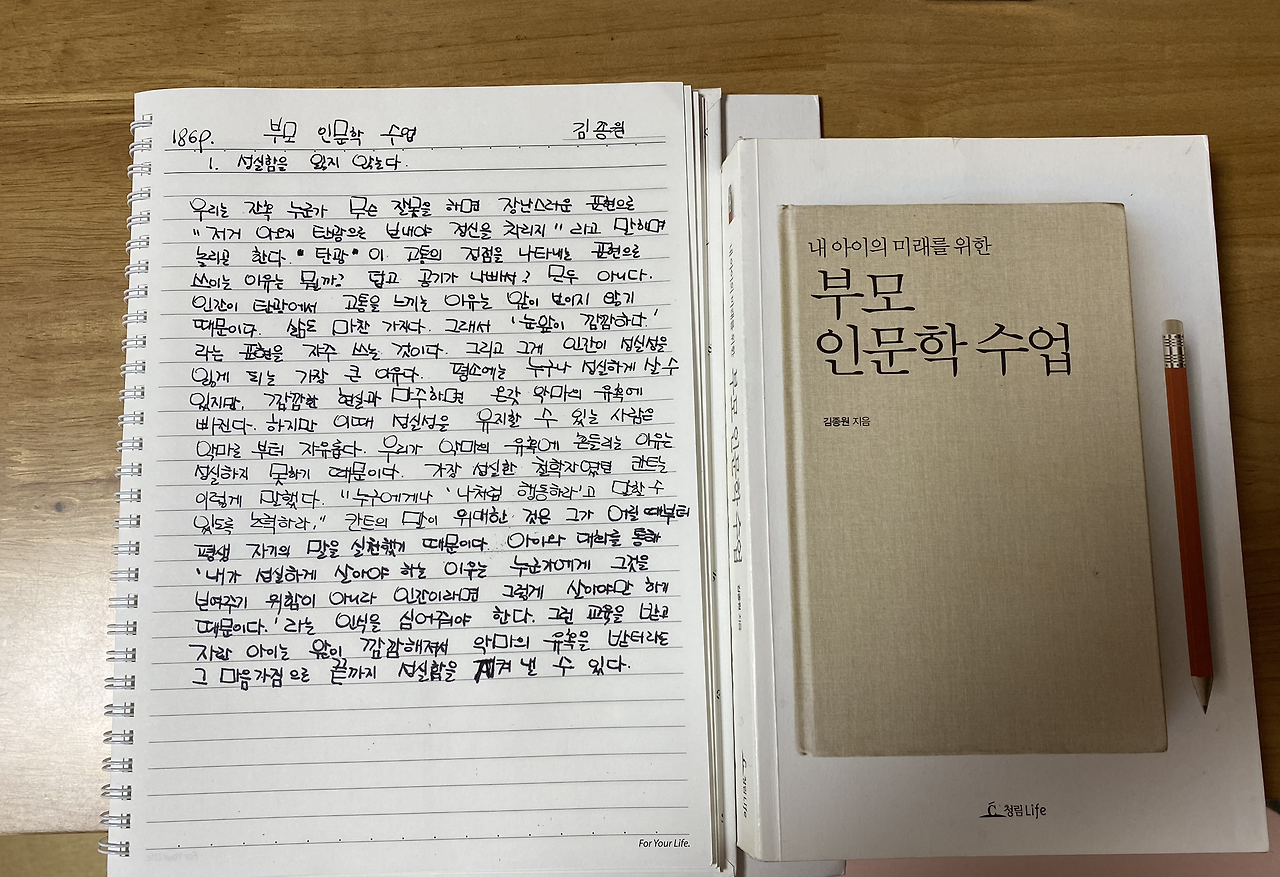 186p. 부모 인문학 수업 김종원
1. 성실함을 잃지 않는다.
우리는 자주 누군가 무슨 잘못을 하면 장난스러운 표현으로
"저거 아오지 탄광으로 보내야 정신을 차리지" 라고 말하며
놀리곤 한다. "탄광" 이 고통의 정점을 나타내는 표현으로
쓰이는 이유는 뭘까? 덥고 공기가 나빠서? 모두 아니다.
인간이 탄광에서 고통을 느끼는 이유는 앞이 보이지 않기
때문이다. 삶도 마찬 가지다. 그래서 '눈앞이 깜깜하다.'
라는 표현을 자주 쓰는 것이다. 그리고 그게 인간이 성실성을
잃게 되는 가장 큰 이유다. 평소에는 누구나 성실하게 살 수
있지만, 깜깜한 현실과 마주하면 온갖 악마의 유혹에
빠진다. 하지만 이때 성실성을 유지할 수 있는 사람은
악마로 부터 자유롭다. 우리가 악마의 유혹에 흔들리는 이유는
성실하지 못하기 때문이다. 가장 성실한 철학자였던 칸트는
이렇게 말했다. "누구에게나 '나처럼 행동하라'고 말할 수
있도록 노력하라." 칸트의 말이 위대한 것은 그가 어릴 때부터
평생 자기의 말을 실천했기 때문이다. 아이와 대화를 통해
'내가 성실하게 살아야 하는 이유는 누군가에게 그것을
보여주기 위함이 아니라 인간이라면 그렇게 살아야만 하기
때문이다.' 라는 인식을 심어줘야 한다. 그런 교육을 받고
자란 아이는 앞이 깜깜해져서 악마의 유혹을 받더라도
그 마음가짐으로 끝까지 성실함을 지켜 낼 수 있다.
For Your Life.
내 아이의 미래를 위한
부모
인문학 수업
김종원 지음
청림Life
내 아이의 미래를 위한 부모 인문학 수업 김종원 지음 청림Life